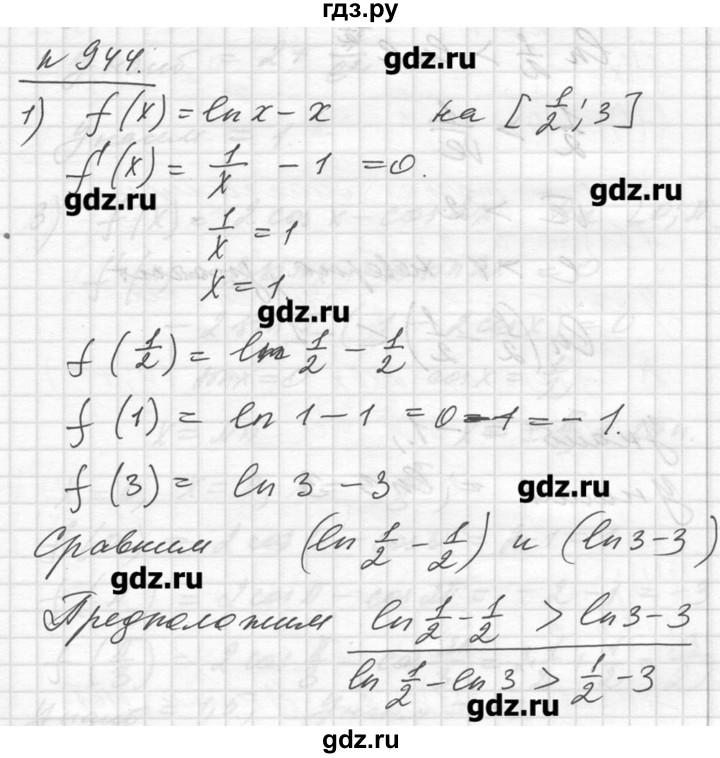 гдз.ру
№ 944.
gdz.ru
1) f(x) = ln x - x на [1/2; 3]
f'(x) = 1/x - 1 = 0.
gdz.ru
gdz.ru
1/x = 1
x = 1.
gdz.ru
f(1/2) = ln 1/2 - 1/2
f(1) = ln 1 - 1 = 0 - 1 = - 1.
f(3) = ln 3 - 3
gdz.ru
Сравним (ln 1/2 - 1/2) и (ln 3 - 3)
gdz.ru
Предположим ln 1/2 - 1/2 > ln 3 - 3
ln 1/2 - ln 3 > 1/2 - 3
gdz.ru
gdz.ru